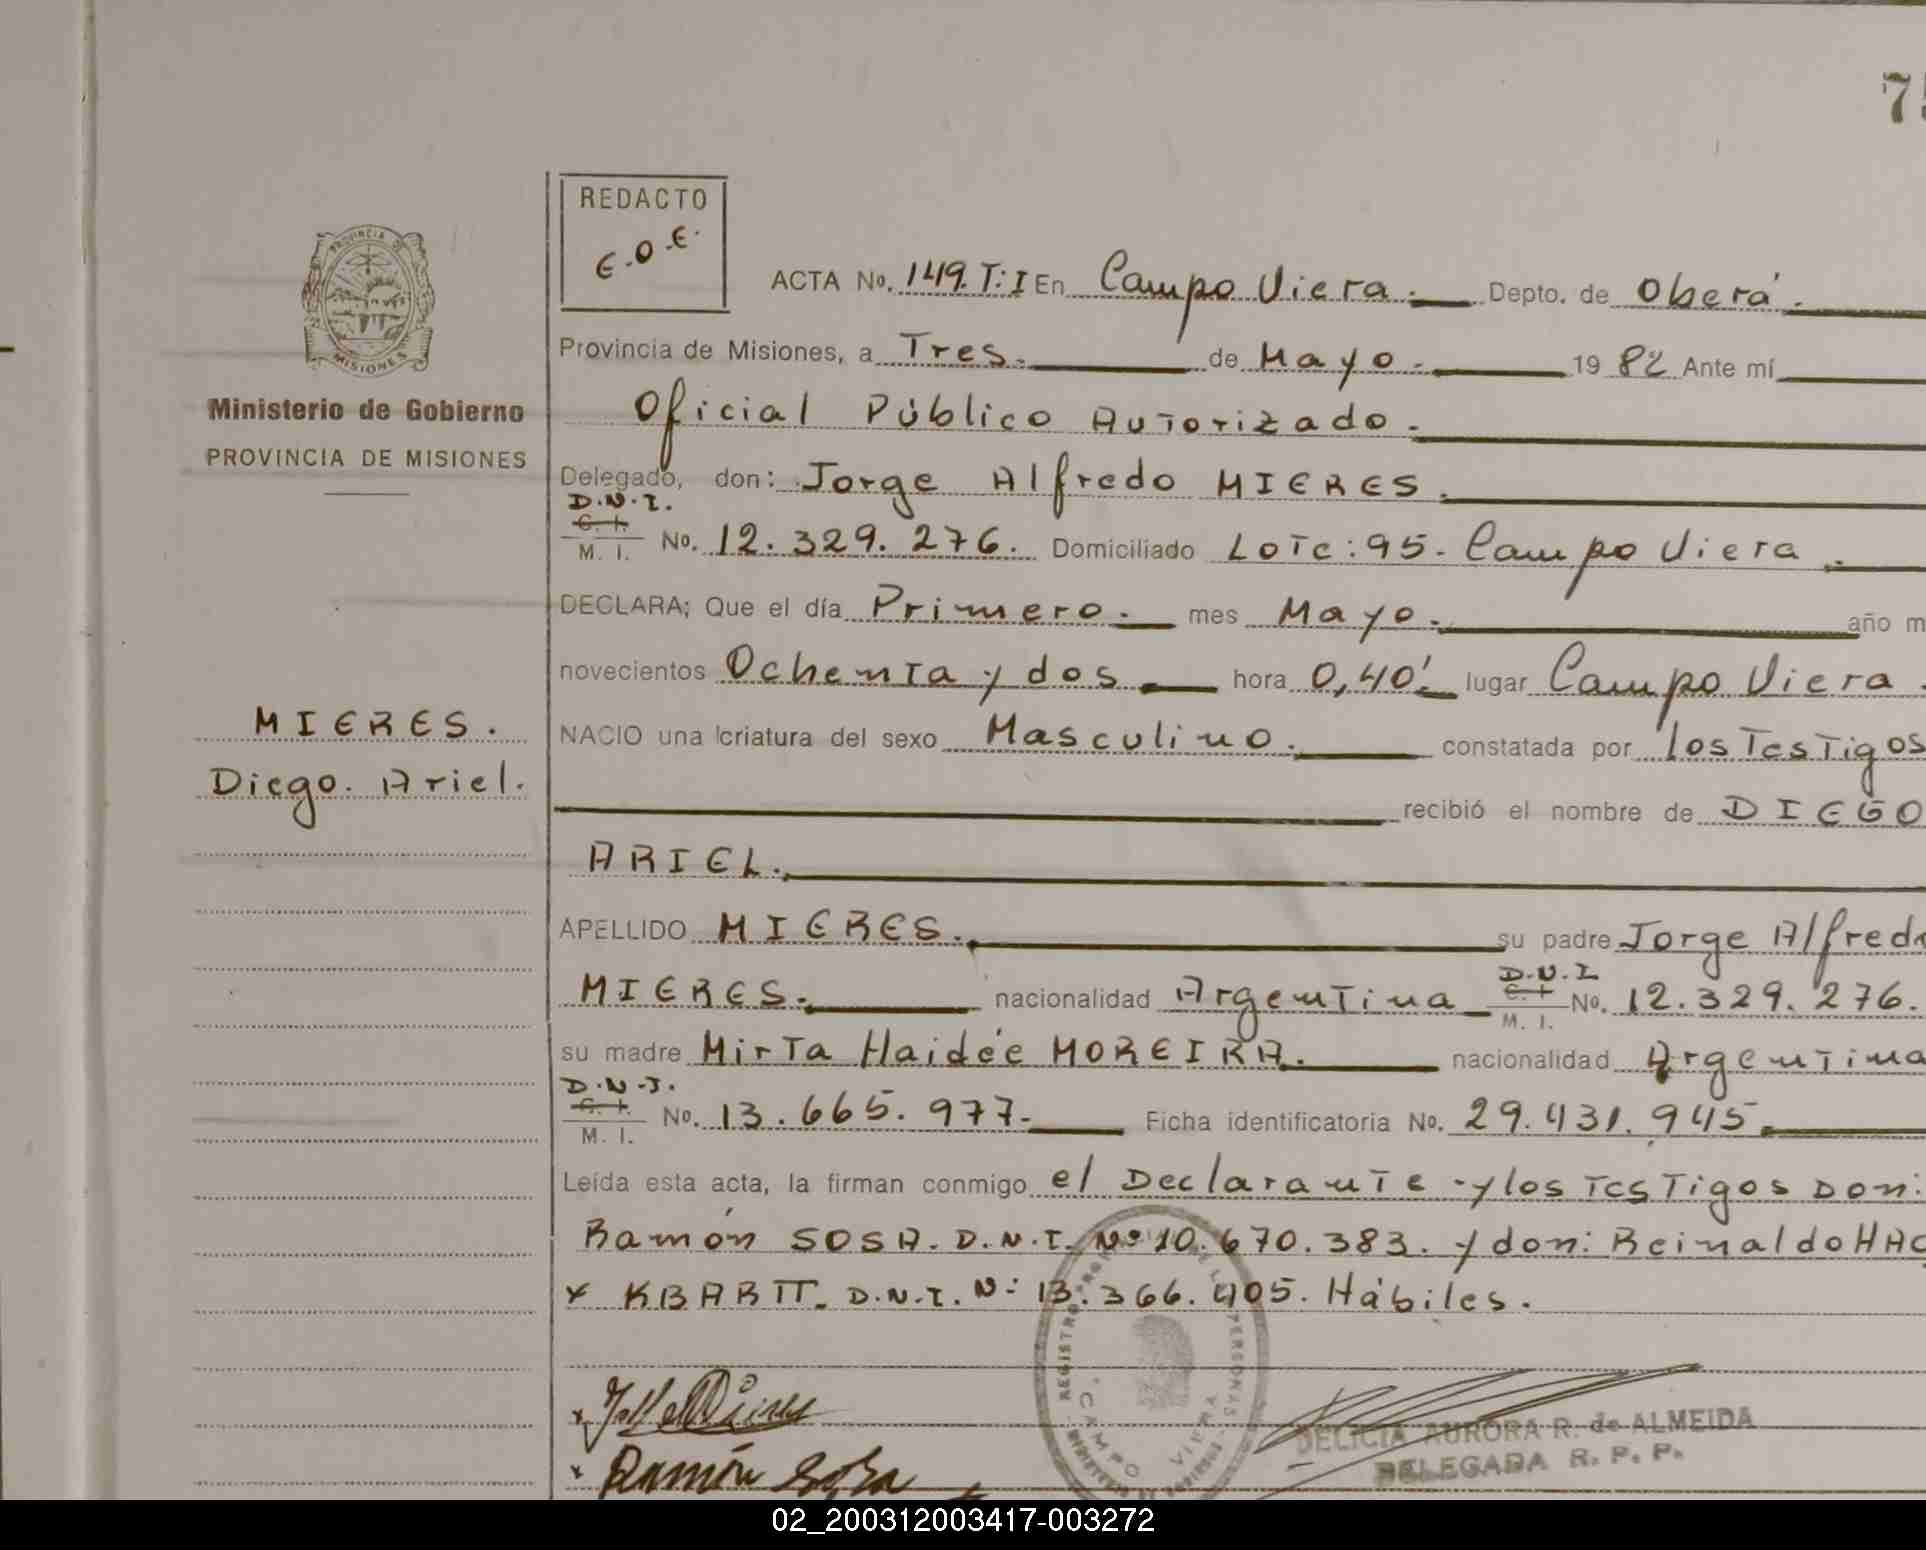 7
REDACTO
E.O.E.
PROVINCIA DE
MISIONES
ACTA No. 149. T: I En Campo Viera. Depto. de Oberá.
Provincia de Misiones, a Tres. de Mayo. 19 82 Ante mí
Ministerio de Gobierno
PROVINCIA DE MISIONES
Oficial Público Autorizado.
Delegado, don: Jorge Alfredo MIERES.
D.N.I.
C. I.
M. I. No. 12.329.276. Domiciliado Lote: 95. Campo Viera.
DECLARA; Que el día Primero. mes Mayo. año m
novecientos Ochenta y dos hora 0,40' lugar Campo Viera.
MIERES.
Diego. Ariel.
NACIO una criatura del sexo Masculino. constatada por los Testigos
recibió el nombre de DIEGO
ARIEL.
APELLIDO MIERES. su padre Jorge Alfredo
MIERES. nacionalidad Argentina D.N.I. C. I. M. I. No. 12.329.276.
su madre Mirta Haidée MOREIRA. nacionalidad Argentina
D.N.I.
C. I.
M. I. No. 13.665.977. Ficha identificatoria No. 29.431.945.
Leída esta acta, la firman conmigo el Declarante y los Testigos Don:
Ramón SOSA. D.N.I. Nº 10.670.383. y don: Reinaldo
D.N.I. N: 13.366.405. Hábiles.
CAMPO VIERA
Ramón Sosa
DELICIA AURORA R. de ALMEIDA
DELEGADA R. P. P.
02_200312003417-003272